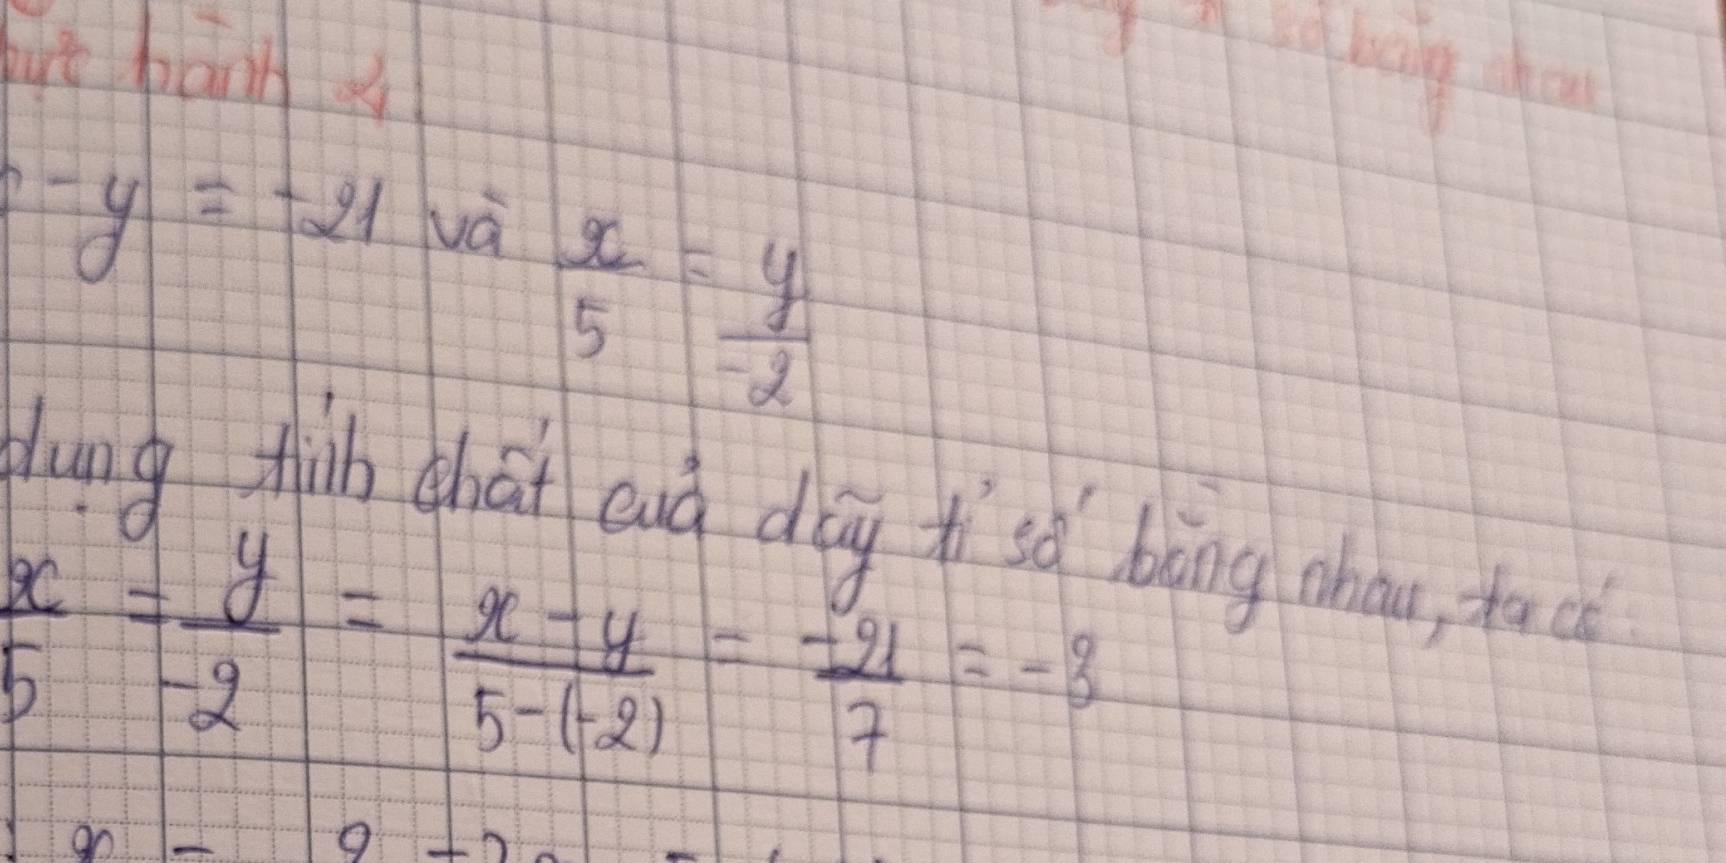 hành 2
bằng nhau
- y = -21 và x/5 = y/-2
dụng tính chất của dãy tỉ số bằng nhau, ta có
x/5 = y/-2 = x - y/5-(-2) = -21/7 = -3